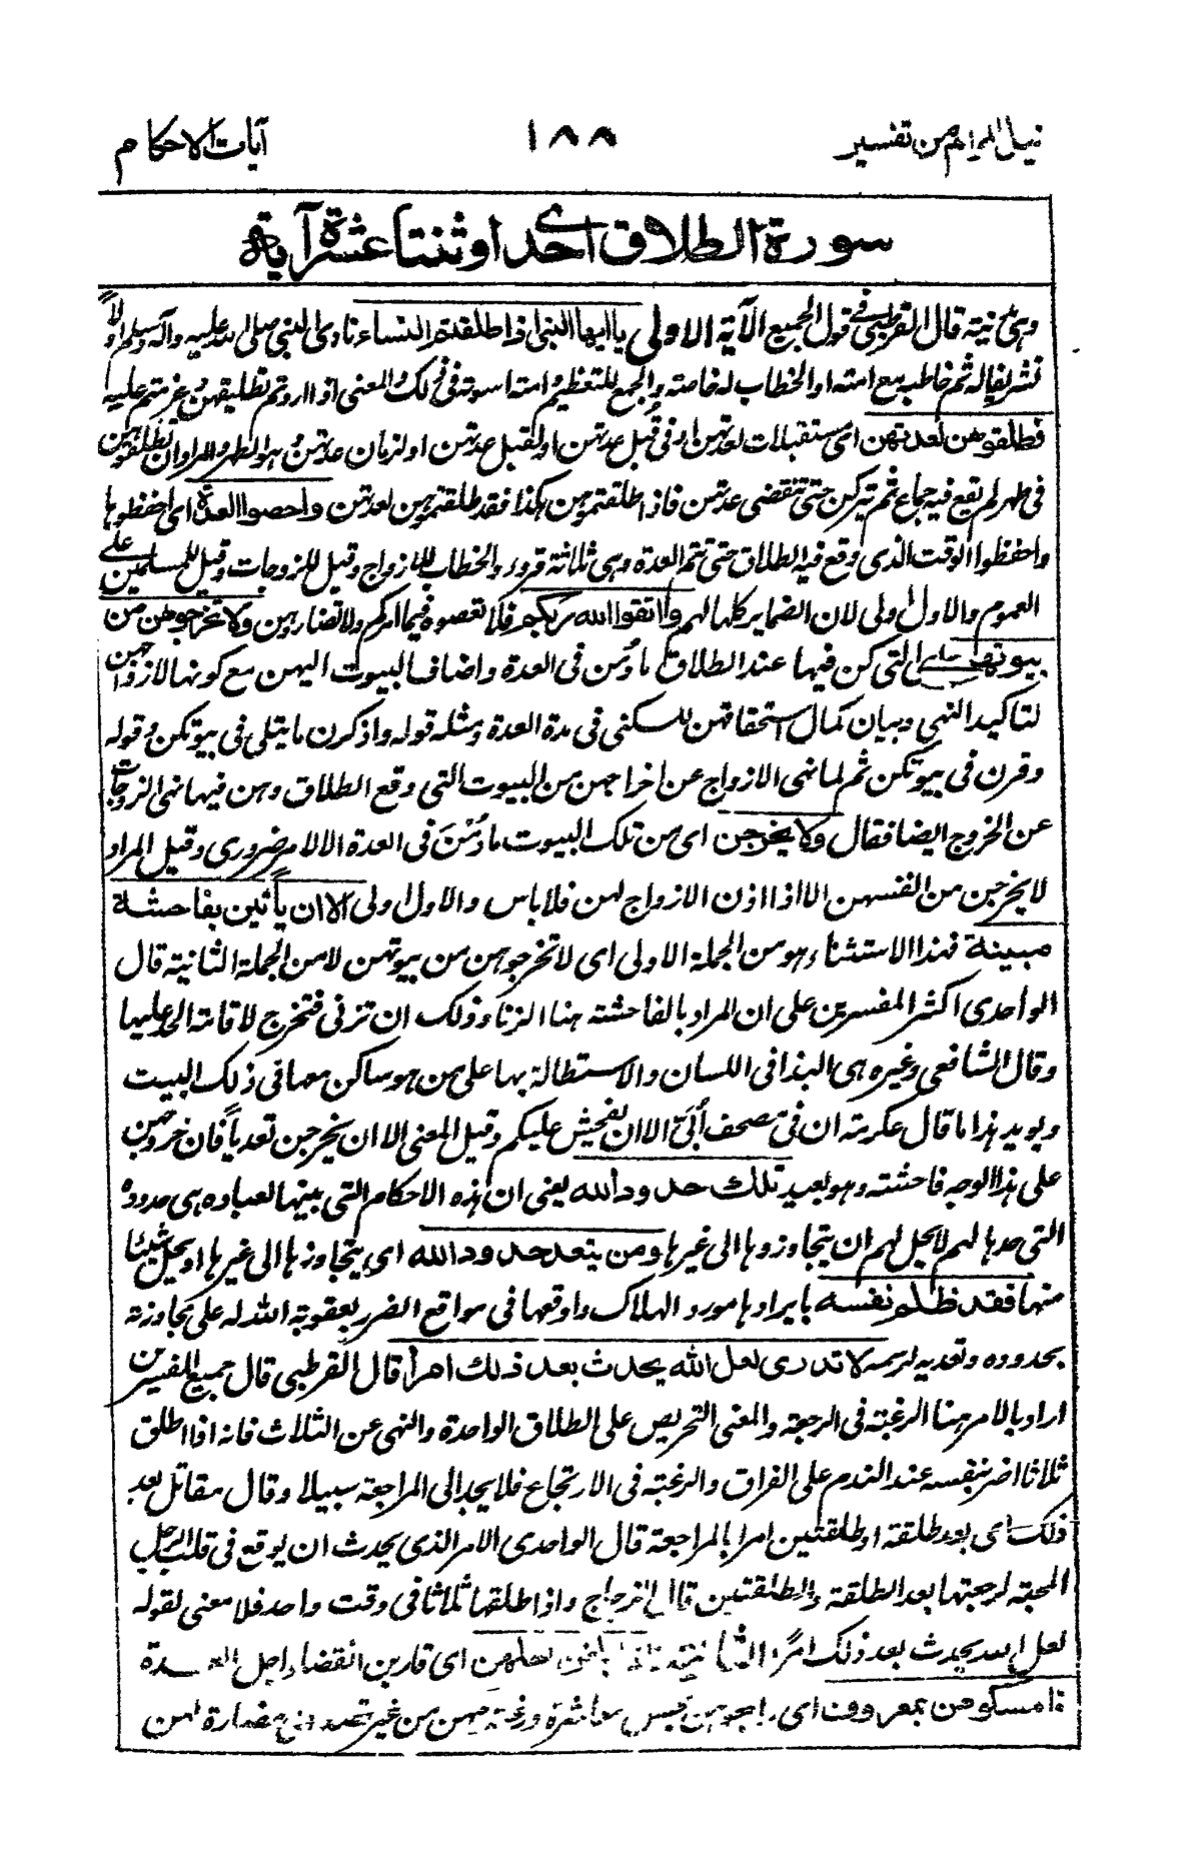 نيل المرام من تفسير ١٨٨ آيات الاحكام
سورة الطلاق احدى او ثنتا عشرة آية
وهى مدنية قال القرطبى فى قول الجميع الآية الاولى ياايها النبى اذا طلقتم النساء نادى النبى صلى الله عليه وآله وسلم اولاً
تشريفا له ثم خاطبه مع امته او الخطاب له خاصة والجمع للتعظيم وامته اسوته فى ذلك والمعنى اذا اردتم تطليقهن وعزمتم عليه
فطلقوهن لعدتهن اى مستقبلات لعدتهن او فى قُبل عدتهن او لقبل عدتهن او لزمان عدتهن وهو الطهر والمراد ان تطلقوهن
فى طهر لم يقع فيه جماع ثم يتركن حتى تنقضى عدتهن فاذا طلقتموهن هكذا فقد طلقتموهن لعدتهن واحصوا العدة اى احفظوها
واحفظوا الوقت الذى وقع فيه الطلاق حتى تتم العدة وهى ثلاثة قروء والخطاب للازواج وقيل للزوجات وقيل للمسلمين على
العموم والاول اولى لان الضماير كلها لهم واتقوا الله ربكم فلا تعصوه فيما امركم ولا تضاروهن ولا تخرجوهن من
بيوتهن اى التى كن فيها عند الطلاق ما دُمن فى العدة واضاف البيوت اليهن مع كونها لازواجهن
لتاكيد النهى وبيان كمال استحقاقهن للسكنى فى مدة العدة ومثله قوله واذكرن ما يتلى فى بيوتكن وقوله
وقرن فى بيوتكن ثم لما نهى الازواج عن اخراجهن من البيوت التى وقع الطلاق وهن فيها نهى الزوجات
عن الخروج ايضا فقال ولا يخرجن اى من تلك البيوت ما دُمْنَ فى العدة الا لامر ضرورى وقيل المراد
لا يخرجن من انفسهن الا اذا اذن الازواج لهن فلا باس والاول اولى الا ان يأتين بفاحشة
مبينة فهذا الاستثناء هو من الجملة الاولى اى لا تخرجوهن من بيوتهن لا من الجملة الثانية قال
الواحدى اكثر المفسرين على ان المراد بالفاحشة هنا الزناء وذلك ان تزنى فتخرج لاقامة الحد عليها
وقال الشافعى وغيره هى البذا فى اللسان والاستطالة بها على من هو ساكن معها فى ذلك البيت
ويويد هذا ما قال عكرمة ان فى مصحف أُبَىّ الا ان يفحش عليكم وقيل المعنى الا ان يخرجن تعدياً فان خروجهن
على هذا الوجه فاحشة وهو بعيد تلك حدود الله يعنى ان هذه الاحكام التى بينها لعباده هى حدوده
التى حدها لهم لا يحل لهم ان يتجاوزوها الى غيرها ومن يتعد حدود الله اى يتجاوزها الى غيرها او يحل شيئا
منها فقد ظلم نفسه بايرادها مورد الهلاك واوقعها فى مواقع الضرر بعقوبة الله له على مجاوزته
بحدوده وتعديه لرسمه لا تدرى لعل الله يحدث بعد ذلك امرا قال القرطبى قال جميع المفسرين
اراد بالامر هنا الرغبة فى الرجعة والمعنى التحريص على الطلاق الواحدة والنهى عن الثلاث فانه اذا طلق
ثلاثا اضر بنفسه عند الندم على الفراق والرغبة فى الارتجاع فلا يجد الى المراجعة سبيلا وقال مقاتل بعد
ذلك اى بعد طلقة او طلقتين امرا بالمراجعة قال الواحدى الامر الذى يحدث ان يوقع فى قلب الرجل
المحبة لرجعتها بعد الطلقة والطلقتين قال الزجاج واذا طلقها ثلاثا فى وقت واحد فلا معنى لقوله
لعل الله يحدث بعد ذلك امرًا الثانية فاذا بلغن اجلهن اى قاربن انقضاء اجل العدة
فامسكوهن بمعروف اى راجعوهن بحسن معاشرة ورغبة فيهن من غير قصد مضارة لهن